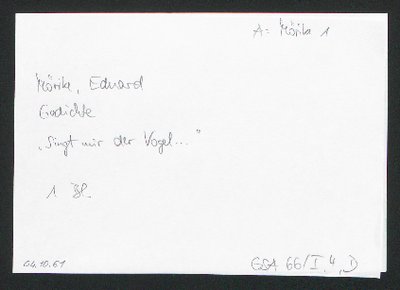 A: Mörike 1
Mörike, Eduard
Gedichte
„Singt mir der Vogel..."
1 Bl.
04.10.61
GSA 66/I,4,D